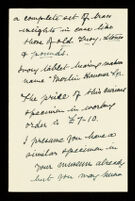 a complete set of brass
weights in case. Like
those of old Troy, Stones
& pounds.
Ivory tablet bearing makers
name "Martin Hammer Ld.
The price of this curious
specimen in working
order is £7-10.
I presume you have a
similar specimen in
your museum already
but you may know